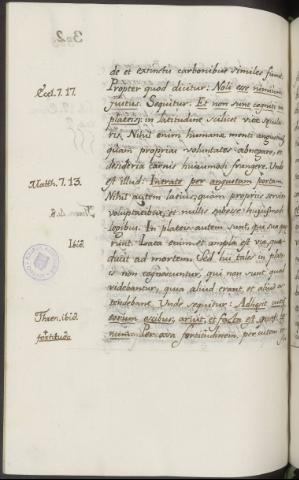 de et extinctis carbonibus similes sunt.
Propter quod dicitur: Noli esse nimium
Eccl. 7. 17.
justus. Sequitur. Et non sunt cogniti in
plateis: in latitudine scilicet vitæ sæcula-
ris. Nihil enim humanæ menti angustius,
quam proprias voluntates abnegare, et
desideria carnis hujusmodi frangere. Unde
Matth. 7. 13.
est illud: Intrate per angustam portam.
Nihil autem latius, quam propriis servire
voluptatibus, et
legibus. In plateis autem sunt, qui sua
Ibid.
runt. Lata enim et ampla est via, quæ
ducit ad mortem. Sed tales in plate-
is non cognoscuntur, qui non sunt quod
videbantur, quia aliud erant, et aliud os-
tendebant. Unde sequitur: Adhæsit cutis
Thren. ibid.
eorum ossibus, aruit, et facta est quasi lig-
num. Per ossa fortitudinem, per cutem
fortitudo